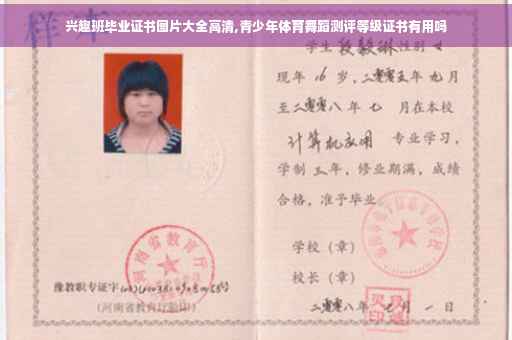 兴趣班毕业证书图片大全高清,青少年体育舞蹈测评等级证书有用吗
样本
学生 段毅琳 性别 女
现年 16 岁,二零零五年 九月
至二零零八年 七 月在本校
计算机应用 专业学习,
学制 三年,修业期满,成绩
合格,准予毕业
学校(章)
校长(章)
二零零八年 七 月 一 日
河南省教育厅
豫教职专证字
(河南省教育厅验印)